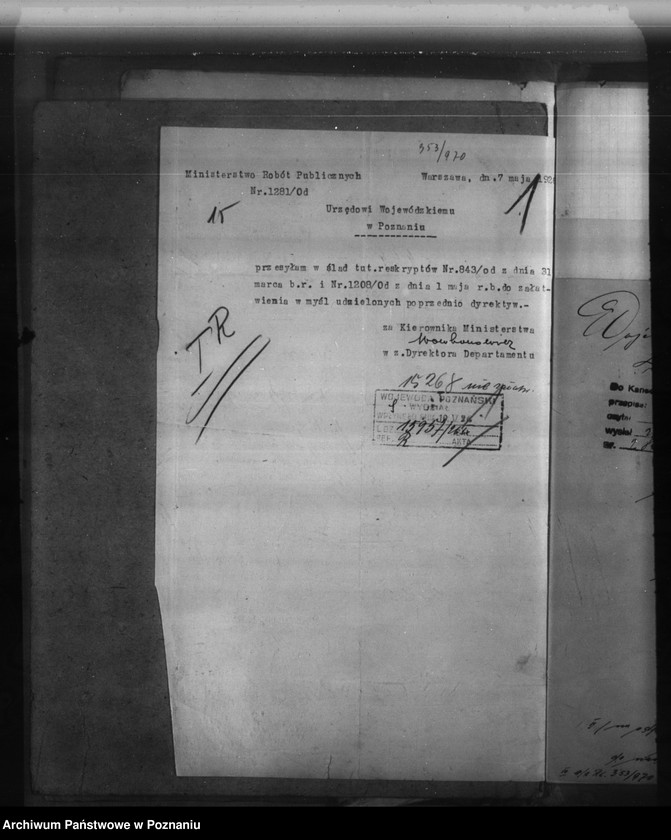 353/970
Ministerstwo Robót Publicznych
Warszawa, dn. 7 maja
Nr.1281/Od
15
1
Urzędowi Wojewódskiemu
w Poznaniu
przesyłam w ślad tut.reskryptów Nr.843/od z dnia 31
marca b.r. i Nr.1208/Od z dnia 1 maja r.b.do załat-
wienia w myśl udzielonych poprzednio dyrektyw.-
TR
za Kierownika Ministerstwa
w z.Dyrektora Departamentu
15268
WOJEWODA POZNAŃSKI
WYDZIAŁ
AKTA
Do Kance
przepisa
czytał
wysłał
Nr.
353/970
Archiwum Państwowe w Poznaniu